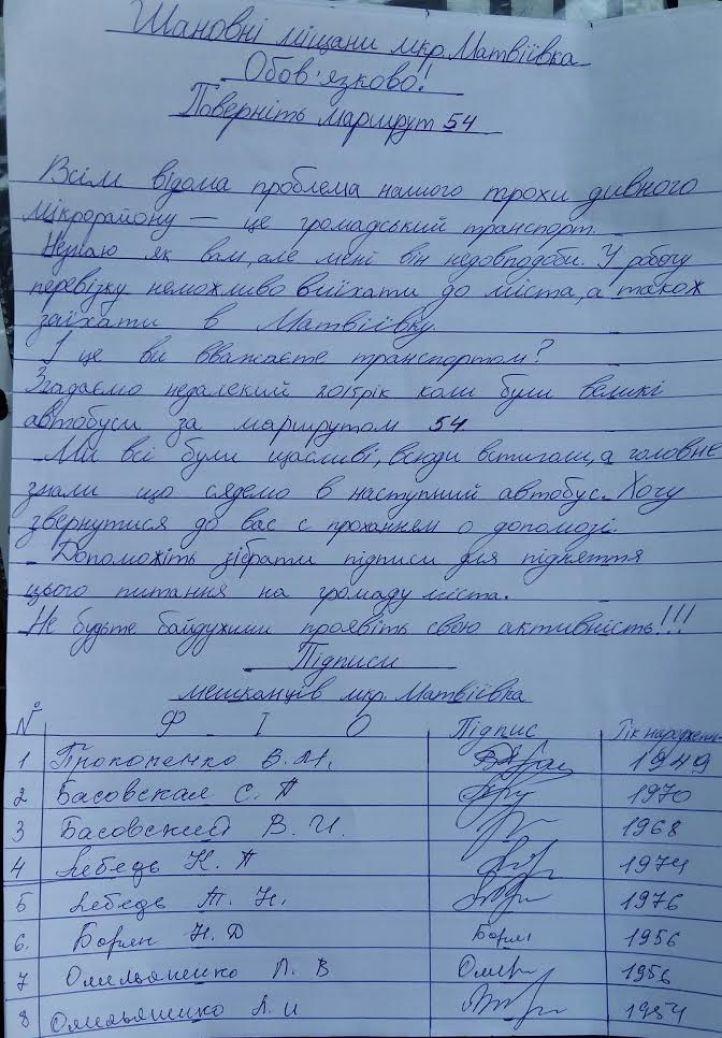 Шановні міщани мкр. Матвіївка
Обов'язково!
Поверніть маршрут 54
Всім відома проблема нашого трохи дивного
мікрорайону — це громадський транспорт.
Незнаю як вам, але мені він недовподоби. У робочу
перевізку неможливо виїхати до міста, а також
заїхати в Матвіївку.
І це ви вважаєте транспортом?
Згадаємо недалекий 2015рік коли були великі
автобуси за маршрутом 54.
Ми всі були щасливі, всюди встигали, а головне
знали що сядемо в наступний автобус. Хочу
звернутися до вас с проханням о допомозі.
Допоможіть зібрати підписи для підняття
цього питання на громаду міста.
Не будьте байдужими проявіть свою активність!!!
Підписи
мешканців мкр. Матвіївка
№ Ф І О Підпис Рік народження
1 Прокопенко В.М. 1949
2 Басовская С. П 1970
3 Басовский В. И. 1968
4 Лебедь Н. П 1974
5 Лебедь Т. Н. 1976
6. Борян Н. Д 1956
7 Омильяненко Л. В 1956
8 Омильяненко А. И 1954